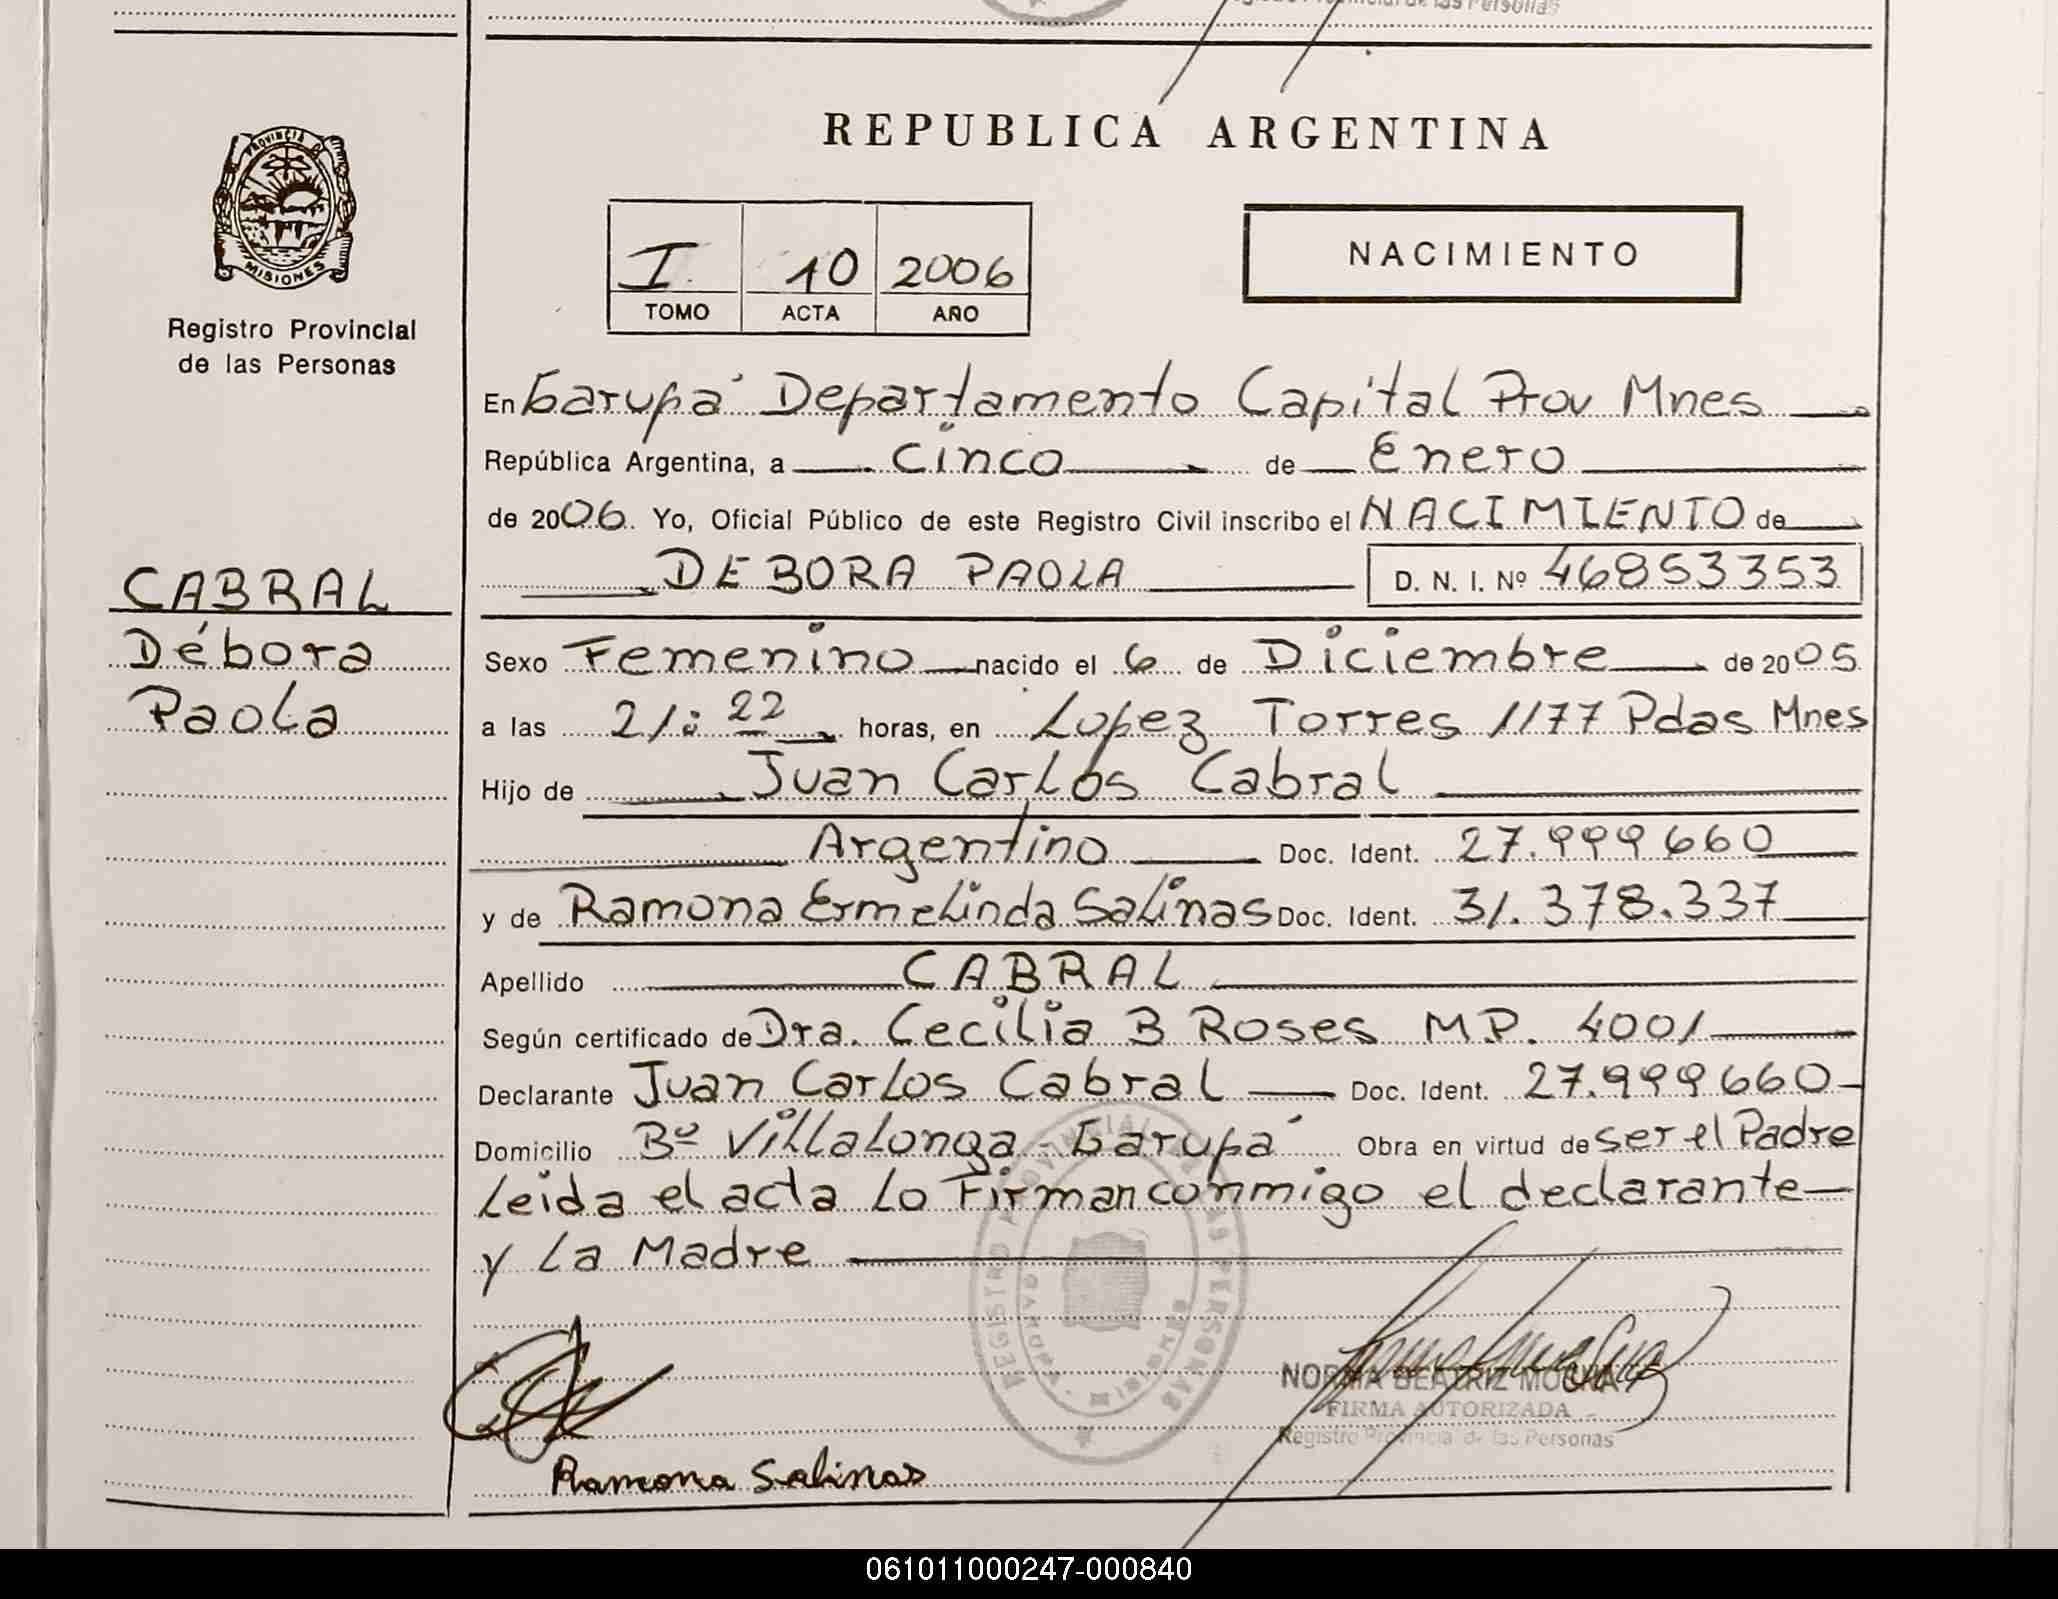 de las Personas
PROVINCIA D
MISIONES
Registro Provincial
de las Personas
CABRAL
Débora
Paola
REPUBLICA ARGENTINA
I 10 2006
TOMO ACTA AÑO
NACIMIENTO
En Garupá Departamento Capital Prov Mnes
República Argentina, a cinco de Enero
de 2006. Yo, Oficial Público de este Registro Civil inscribo el NACIMIENTO de
DEBORA PAOLA D. N. I. Nº 46853353
Sexo Femenino nacido el 6 de Diciembre de 2005
a las 21:22 horas, en Lopez Torres 1177 Pdas Mnes
Hijo de Juan Carlos Cabral
Argentino Doc. Ident. 27.999660
y de Ramona Ermelinda Salinas Doc. Ident. 31.378.337
Apellido CABRAL
Según certificado de Dra. Cecilia B Roses M.P. 4001
Declarante Juan Carlos Cabral Doc. Ident. 27.999660
Domicilio Bº Villalonga - Garupá Obra en virtud de ser el Padre
Leida el acta Lo Firman conmigo el declarante
y La Madre
REGISTRO PROVINCIAL DE LAS PERSONAS
Ramona Salinas
NORMA BEATRIZ MOLINA
FIRMA AUTORIZADA
Registro Provincial de las Personas
061011000247-000840